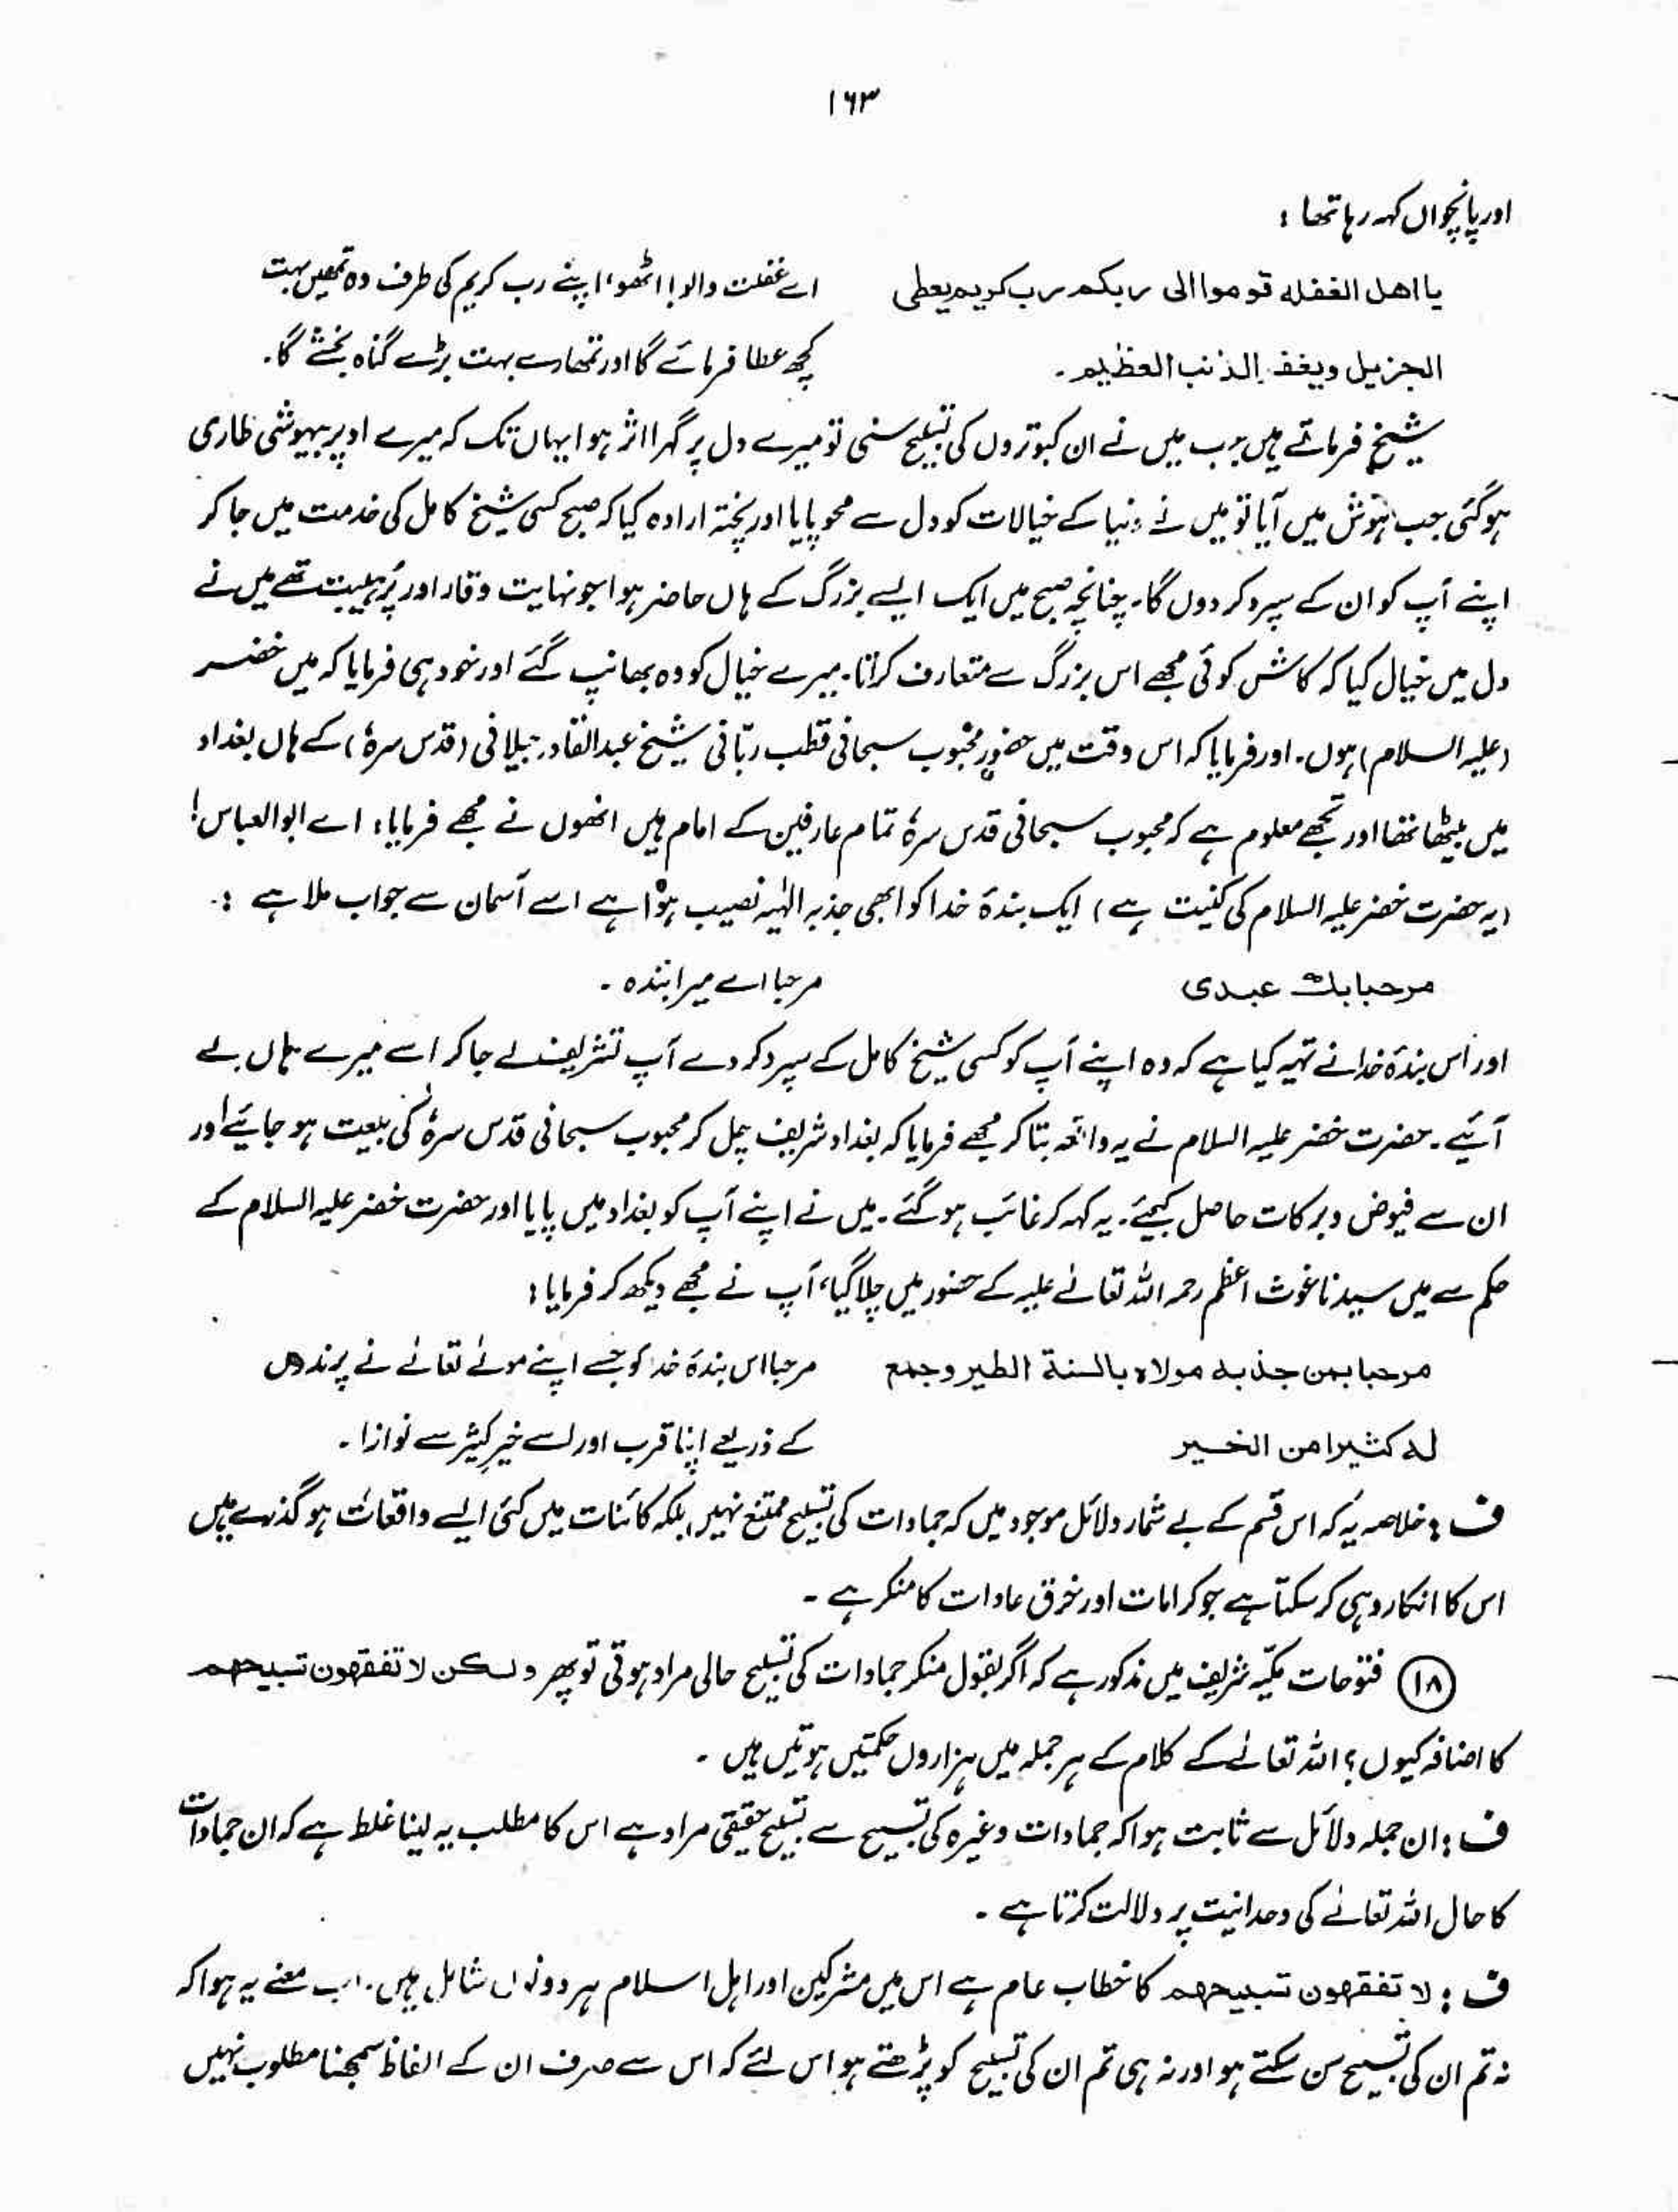 ۱۶۳
اور پانچواں کہہ رہا تھا :
یا اھل الغفلہ قوموا الی ربکم رب کریم یعطی اے غفلت والو! اٹھو، اپنے رب کریم کی طرف وہ تمھیں بہت
الجزیل ویغفر الذنب العظیم ۔ کچھ عطا فرمائے گا اور تمھارے بہت بڑے گناہ بخشے گا۔
شیخ فرماتے ہیں جب میں نے ان کبوتروں کی تسبیح سنی تو میرے دل پر گہرا اثر ہوا یہاں تک کہ میرے اوپر بیہوشی طاری
ہوگئی جب ہوش میں آیا تو میں نے دنیا کے خیالات کو دل سے محو پایا اور پختہ ارادہ کیا کہ صبح کسی شیخ کامل کی خدمت میں جا کر
اپنے آپ کو ان کے سپرد کر دوں گا۔ چنانچہ صبح میں ایک ایسے بزرگ کے ہاں حاضر ہوا جو نہایت وقار اور پُر ہیبت تھے میں نے
دل میں خیال کیا کہ کاش کوئی مجھے اس بزرگ سے متعارف کراتا۔ میرے خیال کو وہ بھانپ گئے اور خود ہی فرمایا کہ میں خضر
(علیہ السلام) ہوں۔ اور فرمایا کہ اس وقت میں حضور محبوب سبحانی قطب ربّانی شیخ عبدالقادر جیلانی (قدس سرہٗ) کے ہاں بغداد
میں بیٹھا تھا اور تجھے معلوم ہے کہ محبوب سبحانی قدس سرہٗ تمام عارفین کے امام ہیں انھوں نے مجھے فرمایا : اے ابوالعباس!
(یہ حضرت خضر علیہ السلام کی کنیت ہے) ایک بندۂ خدا کو ابھی جذبہ الٰہیہ نصیب ہوٗا ہے اسے آسمان سے جواب ملا ہے :۔
مرحبا بک عبدی مرحبا اے میرا بندہ ۔
اور اس بندۂ خدا نے تہیہ کیا ہے کہ وہ اپنے آپ کو کسی شیخ کامل کے سپرد کر دے آپ تشریف لے جا کر اسے میرے ہاں لے
آئیے ۔ حضرت خضر علیہ السلام نے یہ واقعہ بتا کر مجھے فرمایا کہ بغداد شریف چل کر محبوب سبحانی قدس سرہٗ کی بیعت ہو جائیے اور
ان سے فیوض و برکات حاصل کیجئے ۔ یہ کہہ کر غائب ہو گئے ۔ میں نے اپنے آپ کو بغداد میں پایا اور حضرت خضر علیہ السلام کے
حکم سے میں سیدنا غوث اعظم رحمہ اللہ تعالےٰ علیہ کے حضور میں چلا گیا، آپ نے مجھے دیکھ کر فرمایا :
مرحبا بمن جذبہ مولاہ بالسنۃ الطیر وجمع مرحبا اس بندۂ خدا کو جسے اپنے مولےٰ تعالےٰ نے پرندوں
لہ کثیرا من الخیر کے ذریعے اپنا قرب اور اسے خیرِ کثیر سے نوازا ۔
ف : خلاصہ یہ کہ اس قسم کے بے شمار دلائل موجود ہیں کہ جمادات کی تسبیح ممتنع نہیں، بلکہ کائنات میں کئی ایسے واقعات ہو گذرے ہیں
اس کا انکار وہی کر سکتا ہے جو کرامات اور خرق عادات کا منکر ہے ۔
۱۸ فتوحات مکیّہ شریف میں مذکور ہے کہ اگر بقول منکر جمادات کی تسبیح حالی مراد ہوتی تو پھر ولکن لا تفقھون تسبیحھم
کا اضافہ کیوں ؟ اللہ تعالےٰ کے کلام کے ہر جملہ میں ہزاروں حکمتیں ہوتیں ہیں ۔
ف : ان جملہ دلائل سے ثابت ہوا کہ جمادات وغیرہ کی تسبیح سے تسبیح حقیقی مراد ہے اس کا مطلب یہ لینا غلط ہے کہ ان جمادات
کا حال اللہ تعالےٰ کی وحدانیت پر دلالت کرتا ہے ۔
ف : لا تفقھون تسبیحھم کا خطاب عام ہے اس میں مشرکین اور اہل اسلام ہر دونوں شامل ہیں ۔ اب معنے یہ ہوا کہ
نہ تم ان کی تسبیح سن سکتے ہو اور نہ ہی تم ان کی تسبیح کو پڑھتے ہو اس لئے کہ اس سے صرف ان کے الفاظ سمجھنا مطلوب نہیں